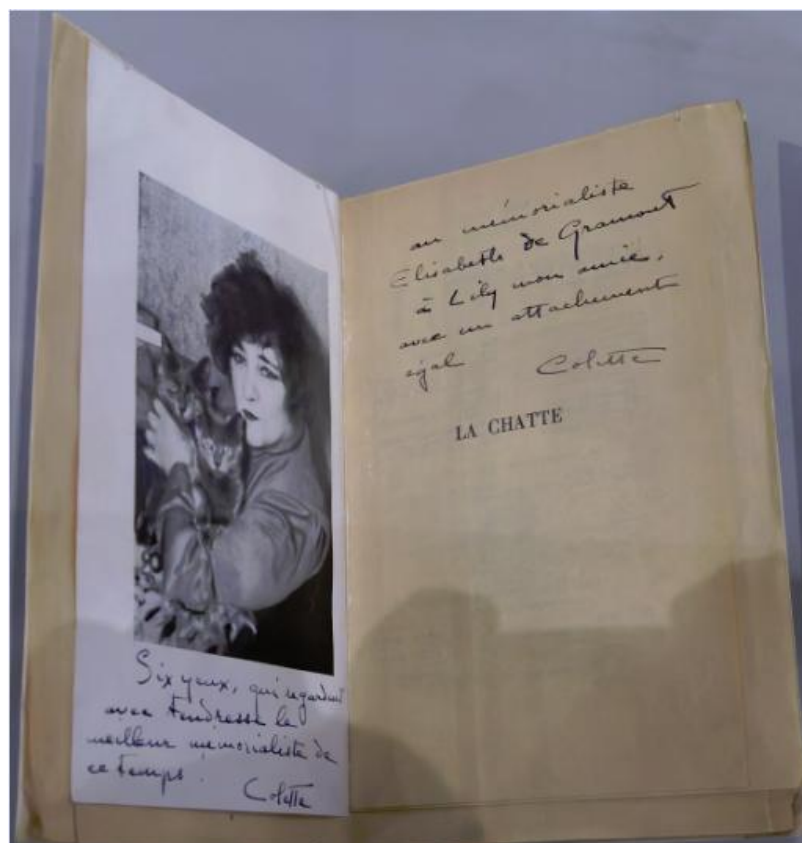 Six yeux, qui regardent
avec tendresse le
meilleur mémorialiste de
ce temps.
Colette
au mémorialiste
Elisabeth de Gramont
à Lily mon amie,
avec un attachement
égal Colette
LA CHATTE